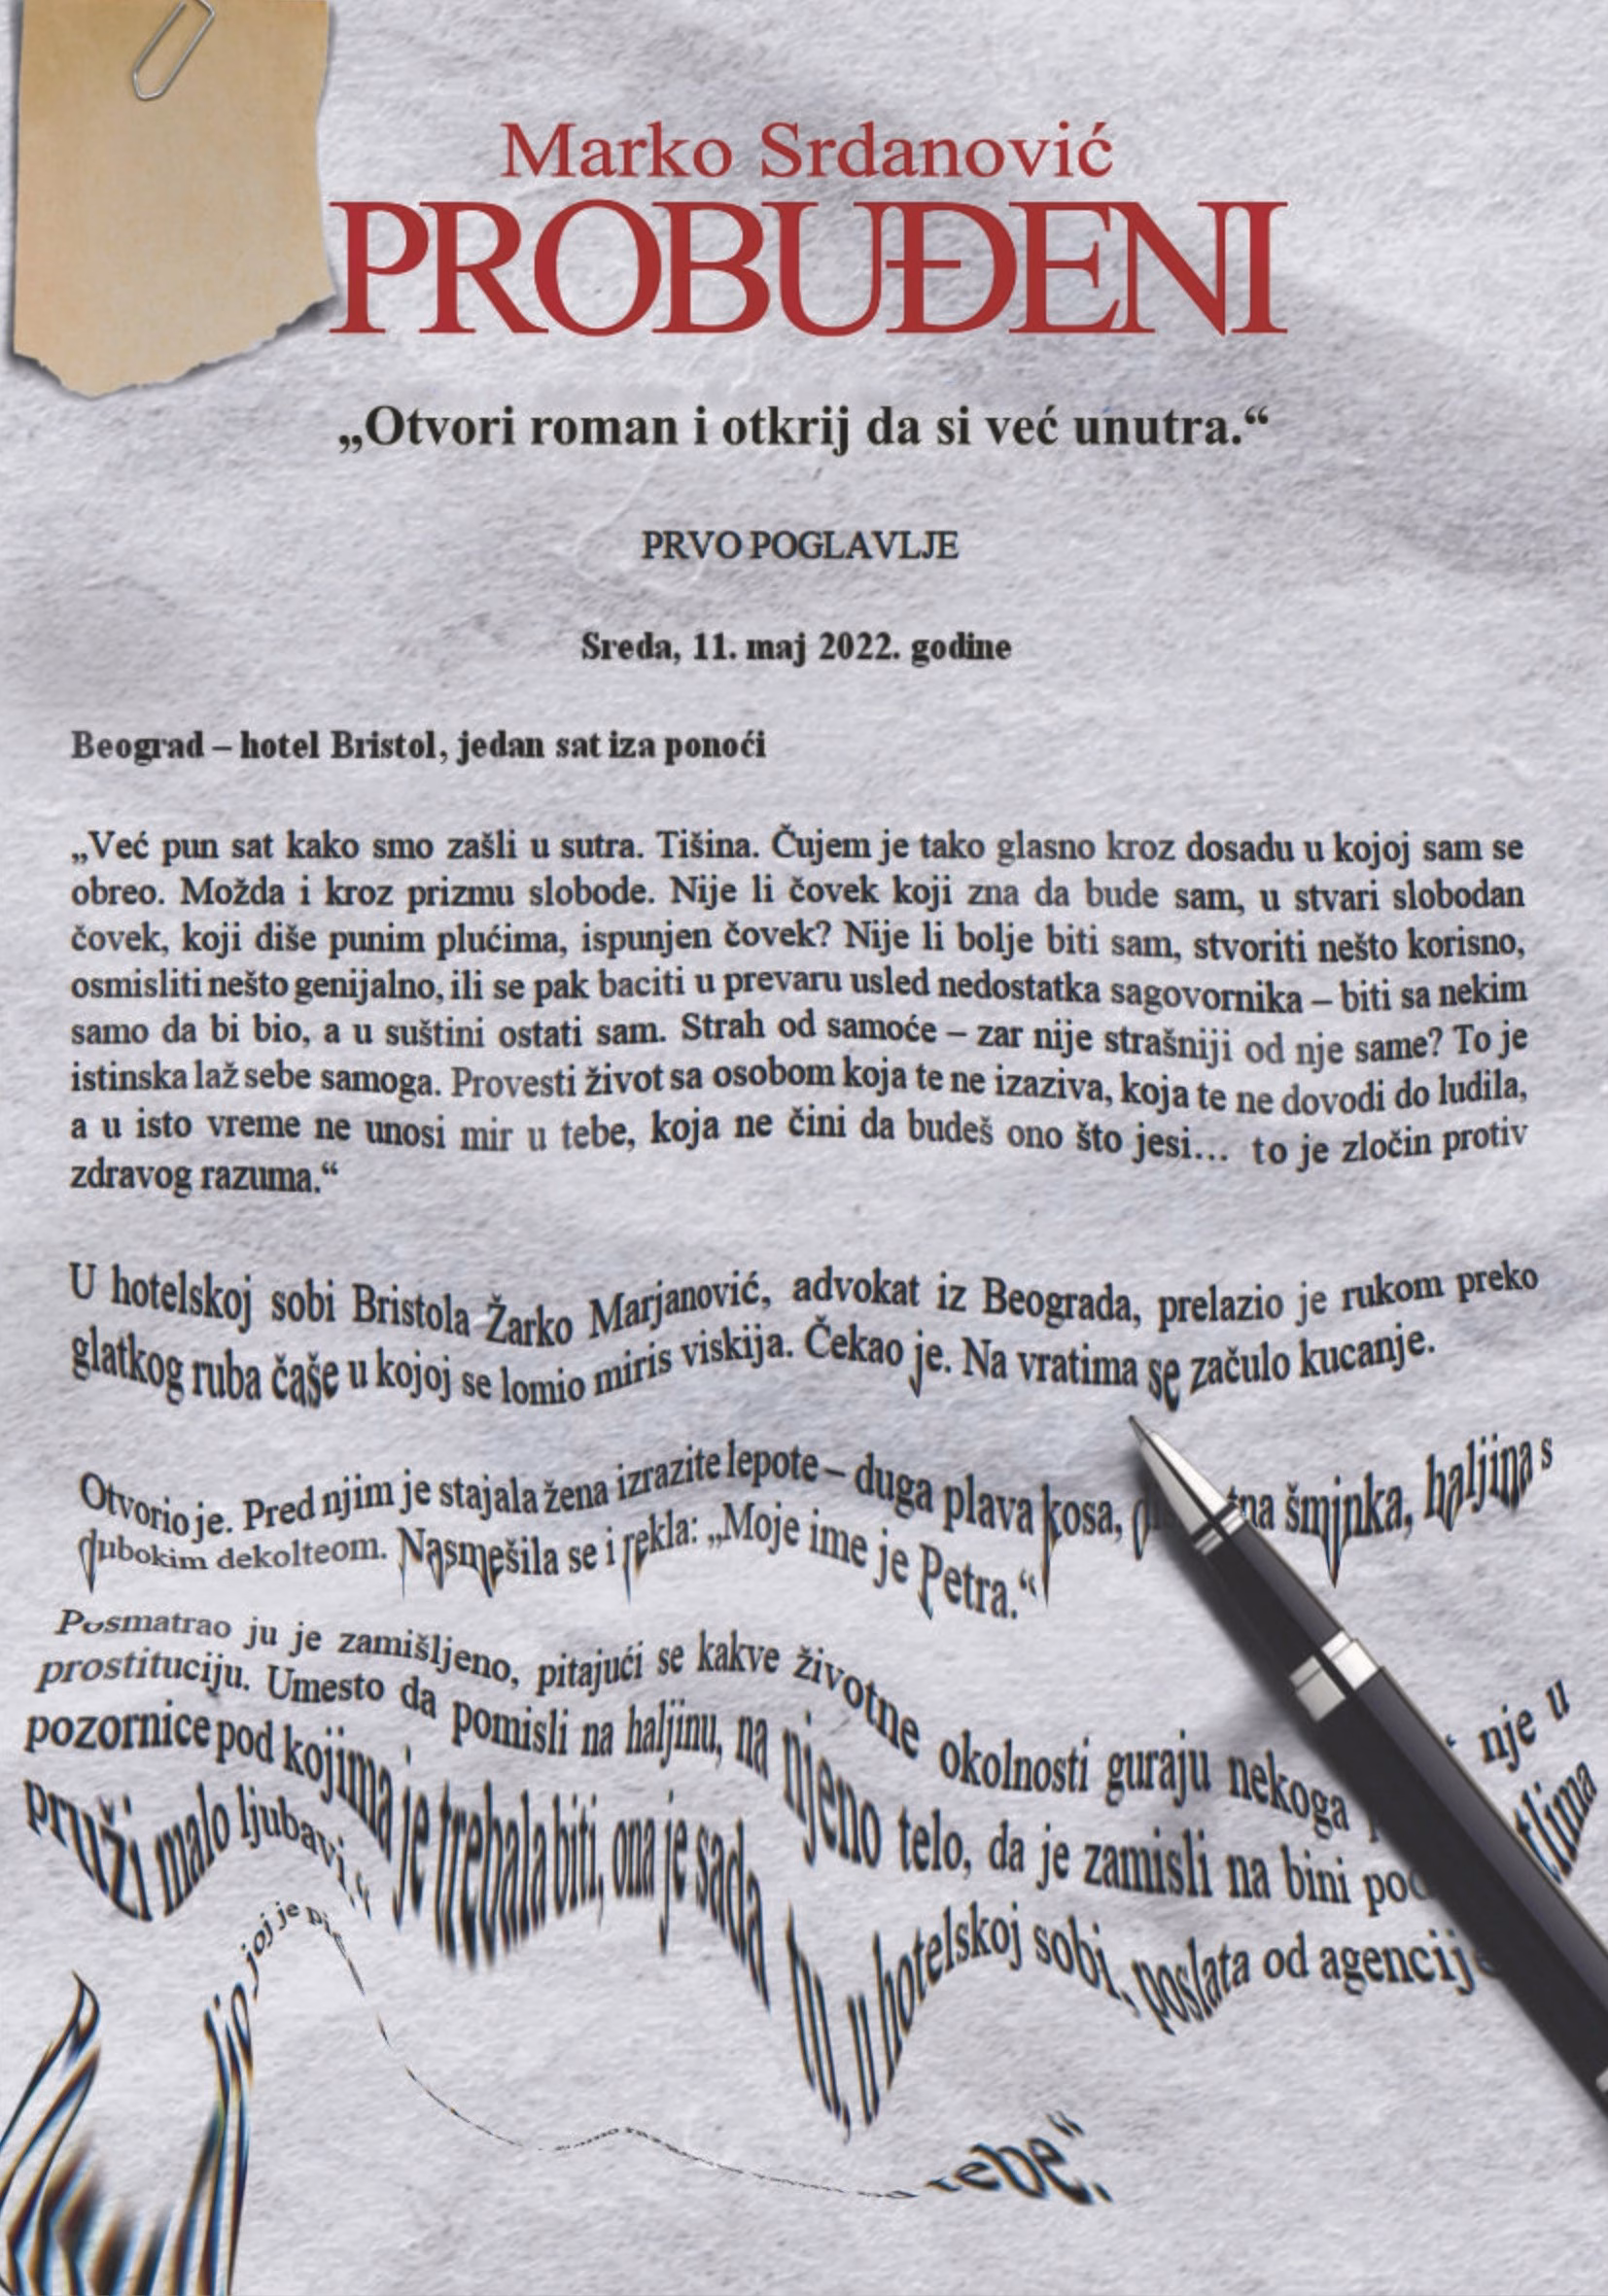 Marko Srdanović
PROBUĐENI
„Otvori roman i otkrij da si već unutra.“
PRVO POGLAVLJE
Sreda, 11. maj 2022. godine
Beograd – hotel Bristol, jedan sat iza ponoći
„Već pun sat kako smo zašli u sutra. Tišina. Čujem je tako glasno kroz dosadu u kojoj sam se
obreo. Možda i kroz prizmu slobode. Nije li čovek koji zna da bude sam, u stvari slobodan
čovek, koji diše punim plućima, ispunjen čovek? Nije li bolje biti sam, stvoriti nešto korisno,
osmisliti nešto genijalno, ili se pak baciti u prevaru usled nedostatka sagovornika – biti sa nekim
samo da bi bio, a u suštini ostati sam. Strah od samoće – zar nije strašniji od nje same? To je
istinska laž sebe samoga. Provesti život sa osobom koja te ne izaziva, koja te ne dovodi do ludila,
a u isto vreme ne unosi mir u tebe, koja ne čini da budeš ono što jesi... to je zločin protiv
zdravog razuma.“
U hotelskoj sobi Bristola Žarko Marjanović, advokat iz Beograda, prelazio je rukom preko
glatkog ruba čaše u kojoj se lomio miris viskija. Čekao je. Na vratima se začulo kucanje.
Otvorio je. Pred njim je stajala žena izrazite lepote – duga plava kosa, šminka, haljina s
dubokim dekolteom. Nasmešila se i rekla: „Moje ime je Petra.“
Posmatrao ju je zamišljeno, pitajući se kakve životne okolnosti guraju nekoga nje u
prostituciju. Umesto da pomisli na haljinu, na njeno telo, da je zamisli na bini pod
pozornice pod kojima je trebala biti, ona je sada tu, u hotelskoj sobi, poslata od agencije
pruži malo ljubavi.“
joj je
tebe“.